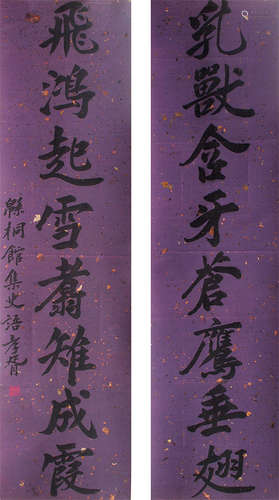 乳獸含牙蒼鷹垂翅
飛鴻起雪翥雉成霞
緜桐館集史語孝胥